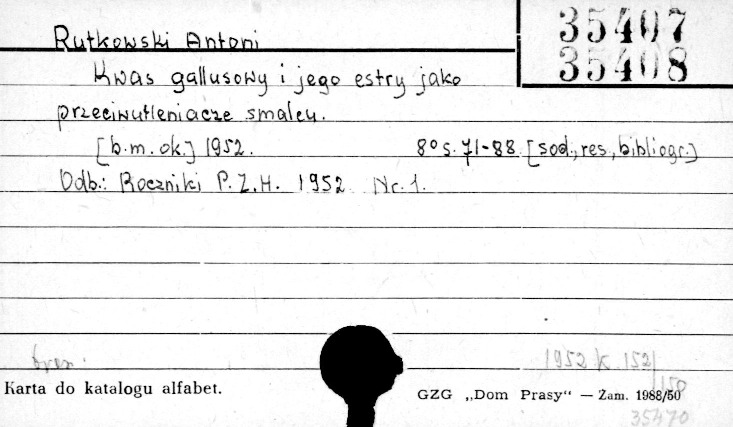 35407
35408
Rutkowski Antoni
Kwas gallusowy i jego estry jako
przeciwutleniacze smalcu.
[b.m.ok.] 1952. 8° s. 71-88. [sod., res., bibliogr.]
Odb.: Roczniki P.Z.H. 1952 Nr. 1.
1952 K. 152
150
Karta do katalogu alfabet.
GZG „Dom Prasy“ — Zam. 1988/50
35470